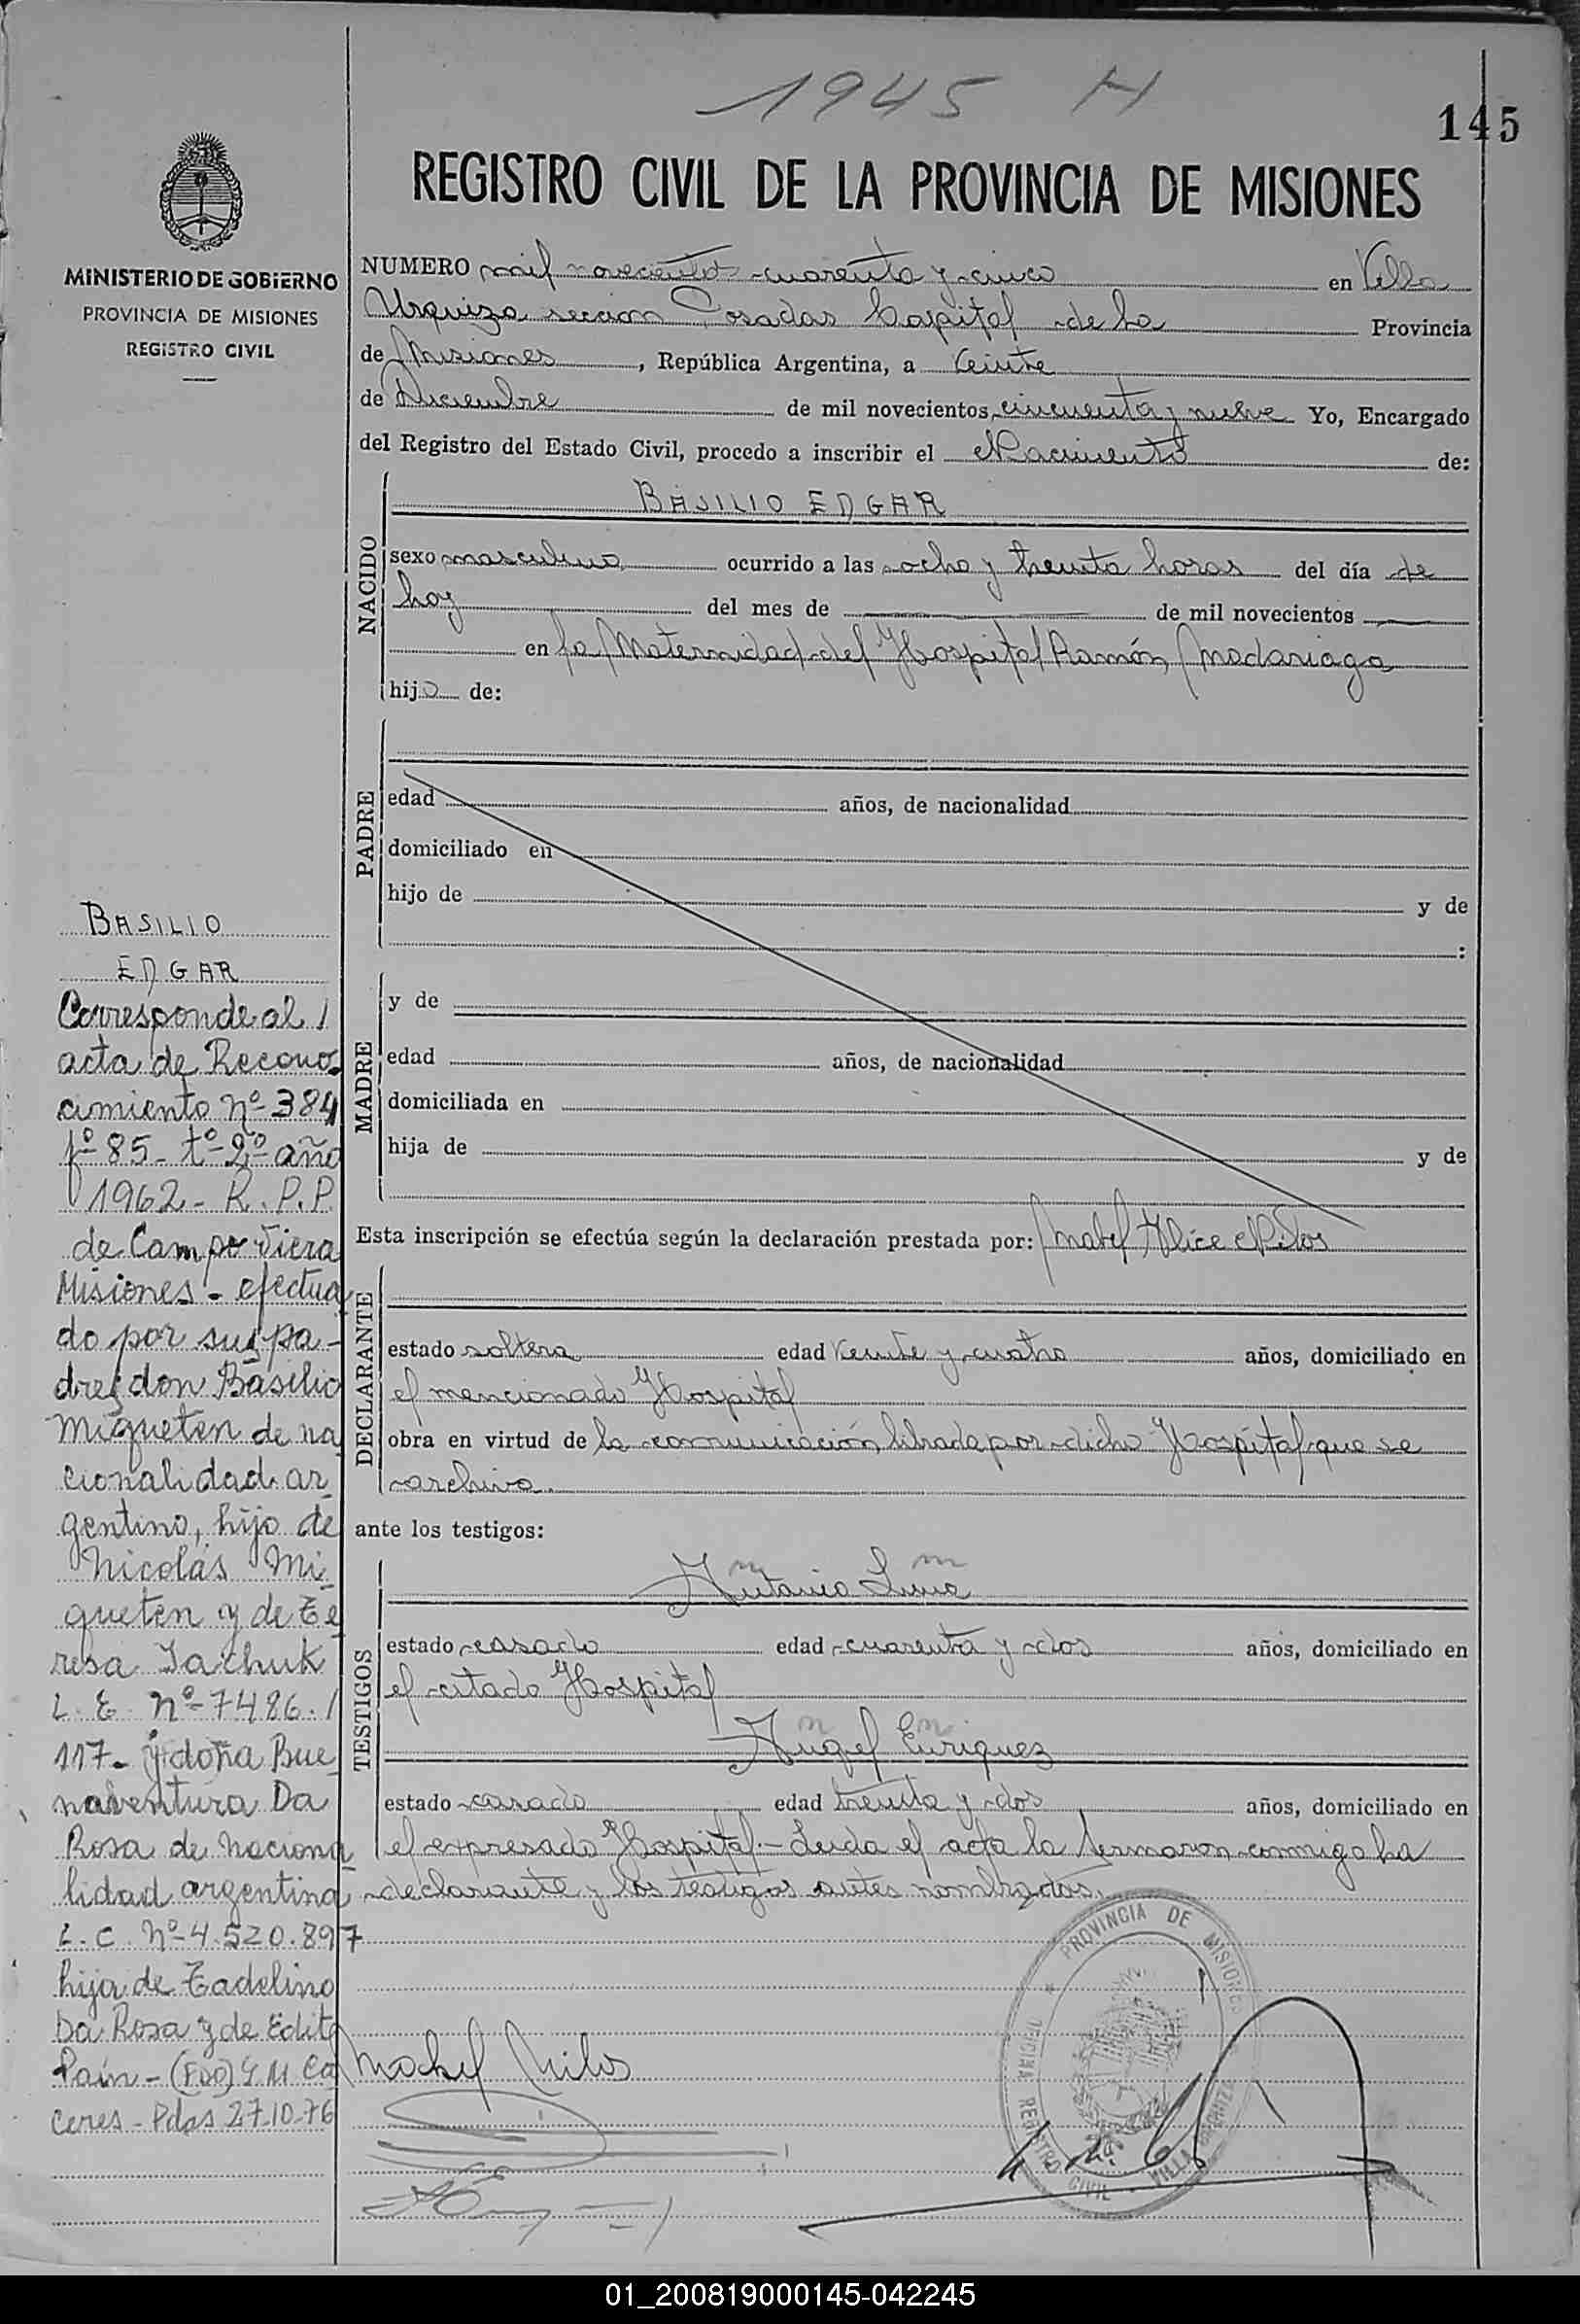 1945 H
145
REGISTRO CIVIL DE LA PROVINCIA DE MISIONES
MINISTERIO DE GOBIERNO
PROVINCIA DE MISIONES
REGISTRO CIVIL
NUMERO mil novecientos cuarenta y cinco en Villa
Urquiza sección Posadas hospital de la Provincia
de Misiones, República Argentina, a veinte
de Diciembre de mil novecientos cincuenta y nueve Yo, Encargado
del Registro del Estado Civil, procedo a inscribir el Nacimiento de:
NACIDO
BASILIO EDGAR
sexo masculino ocurrido a las ocho y treinta horas del día de
hoy del mes de de mil novecientos
en la Maternidad del Hospital Ramón Madariaga
hijo de:
PADRE
edad años, de nacionalidad
domiciliado en
hijo de y de
:
MADRE
y de
edad años, de nacionalidad
domiciliada en
hija de y de
Esta inscripción se efectúa según la declaración prestada por: Mabel Alice
DECLARANTE
estado soltera edad veinte y cuatro años, domiciliado en
el mencionado Hospital
obra en virtud de la comunicación librada por dicho Hospital que se
archiva.
ante los testigos:
TESTIGOS
Antonio Luna
estado casado edad cuarenta y dos años, domiciliado en
el citado Hospital
Angel Enriquez
estado casado edad treinta y dos años, domiciliado en
el expresado Hospital.- Leida el acta la firmaron conmigo la
declarante y los testigos antes nombrados.
BASILIO
EDGAR
Corresponde al /
acta de Recono-
cimiento nº 384
fº 85- tº 2º año
1962- R. P.P.
de Campo Viera
Misiones - efectua
do por sus pa-
dres don Basilio
Miqueten de na
cionalidad ar-
gentino, hijo de
Nicolás Mi-
queten y de Te
resa Iachuk
L. E. nº 7486. /
117- y doña Bue
naventura Da
Rosa de naciona
lidad argentina
L. C. Nº 4.520.897
hija de Tadelino
Da Rosa y de Edit
Pain - (FDO) G M Ca
ceres - Pdas 27-10-76
Mabel
PROVINCIA DE MISIONES
REGISTRO CIVIL - VILLA URQUIZA
01_200819000145-042245